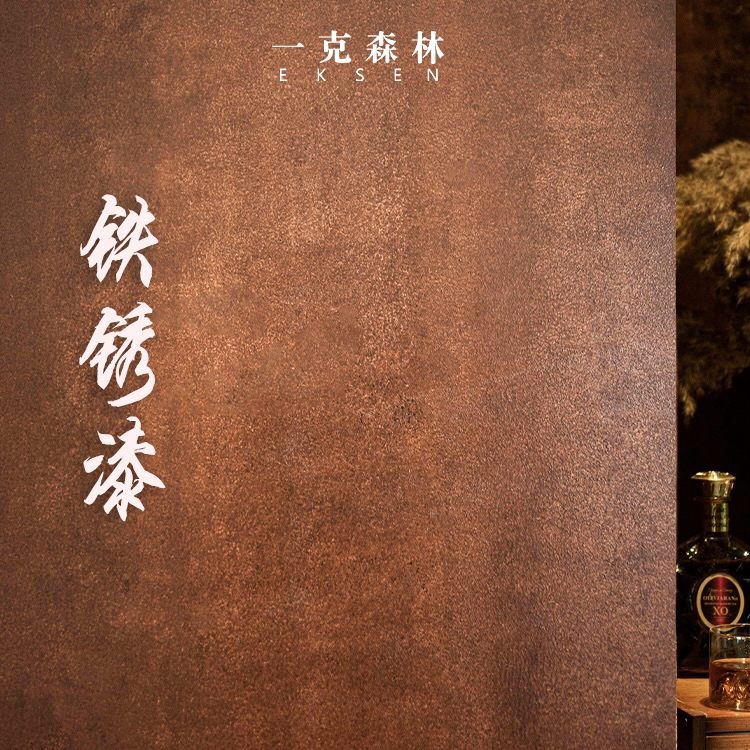 一克森林
EKSEN
铁锈漆
XO